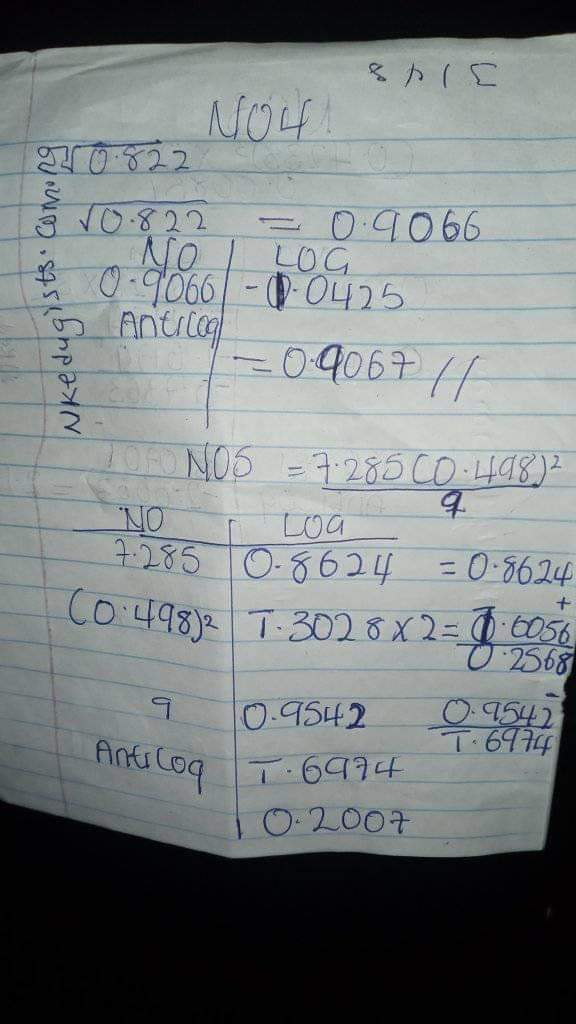 3148
NO4
√0.822
√0.822 = 0.9066
NO | LOG
0.9066 | -0.0425
Antilog
= 0.9067 //
Nkedugists.com
NO5 = 7.285(0.498)²
9
NO | LOG
7.285 | 0.8624 = 0.8624
+
(0.498)² | T.3028×2 = 0.6056
0.2568
-
9 | 0.9542 0.9542
Antilog | T.6974 T.6974
0.2007